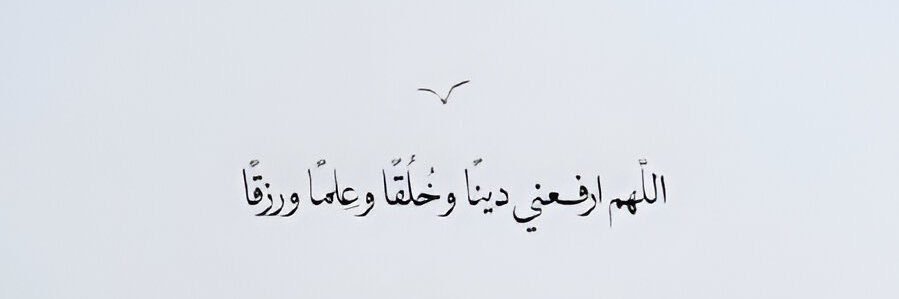 اللَّهم ارفعني دينًا وخُلُقًا وعِلمًا ورزقًا